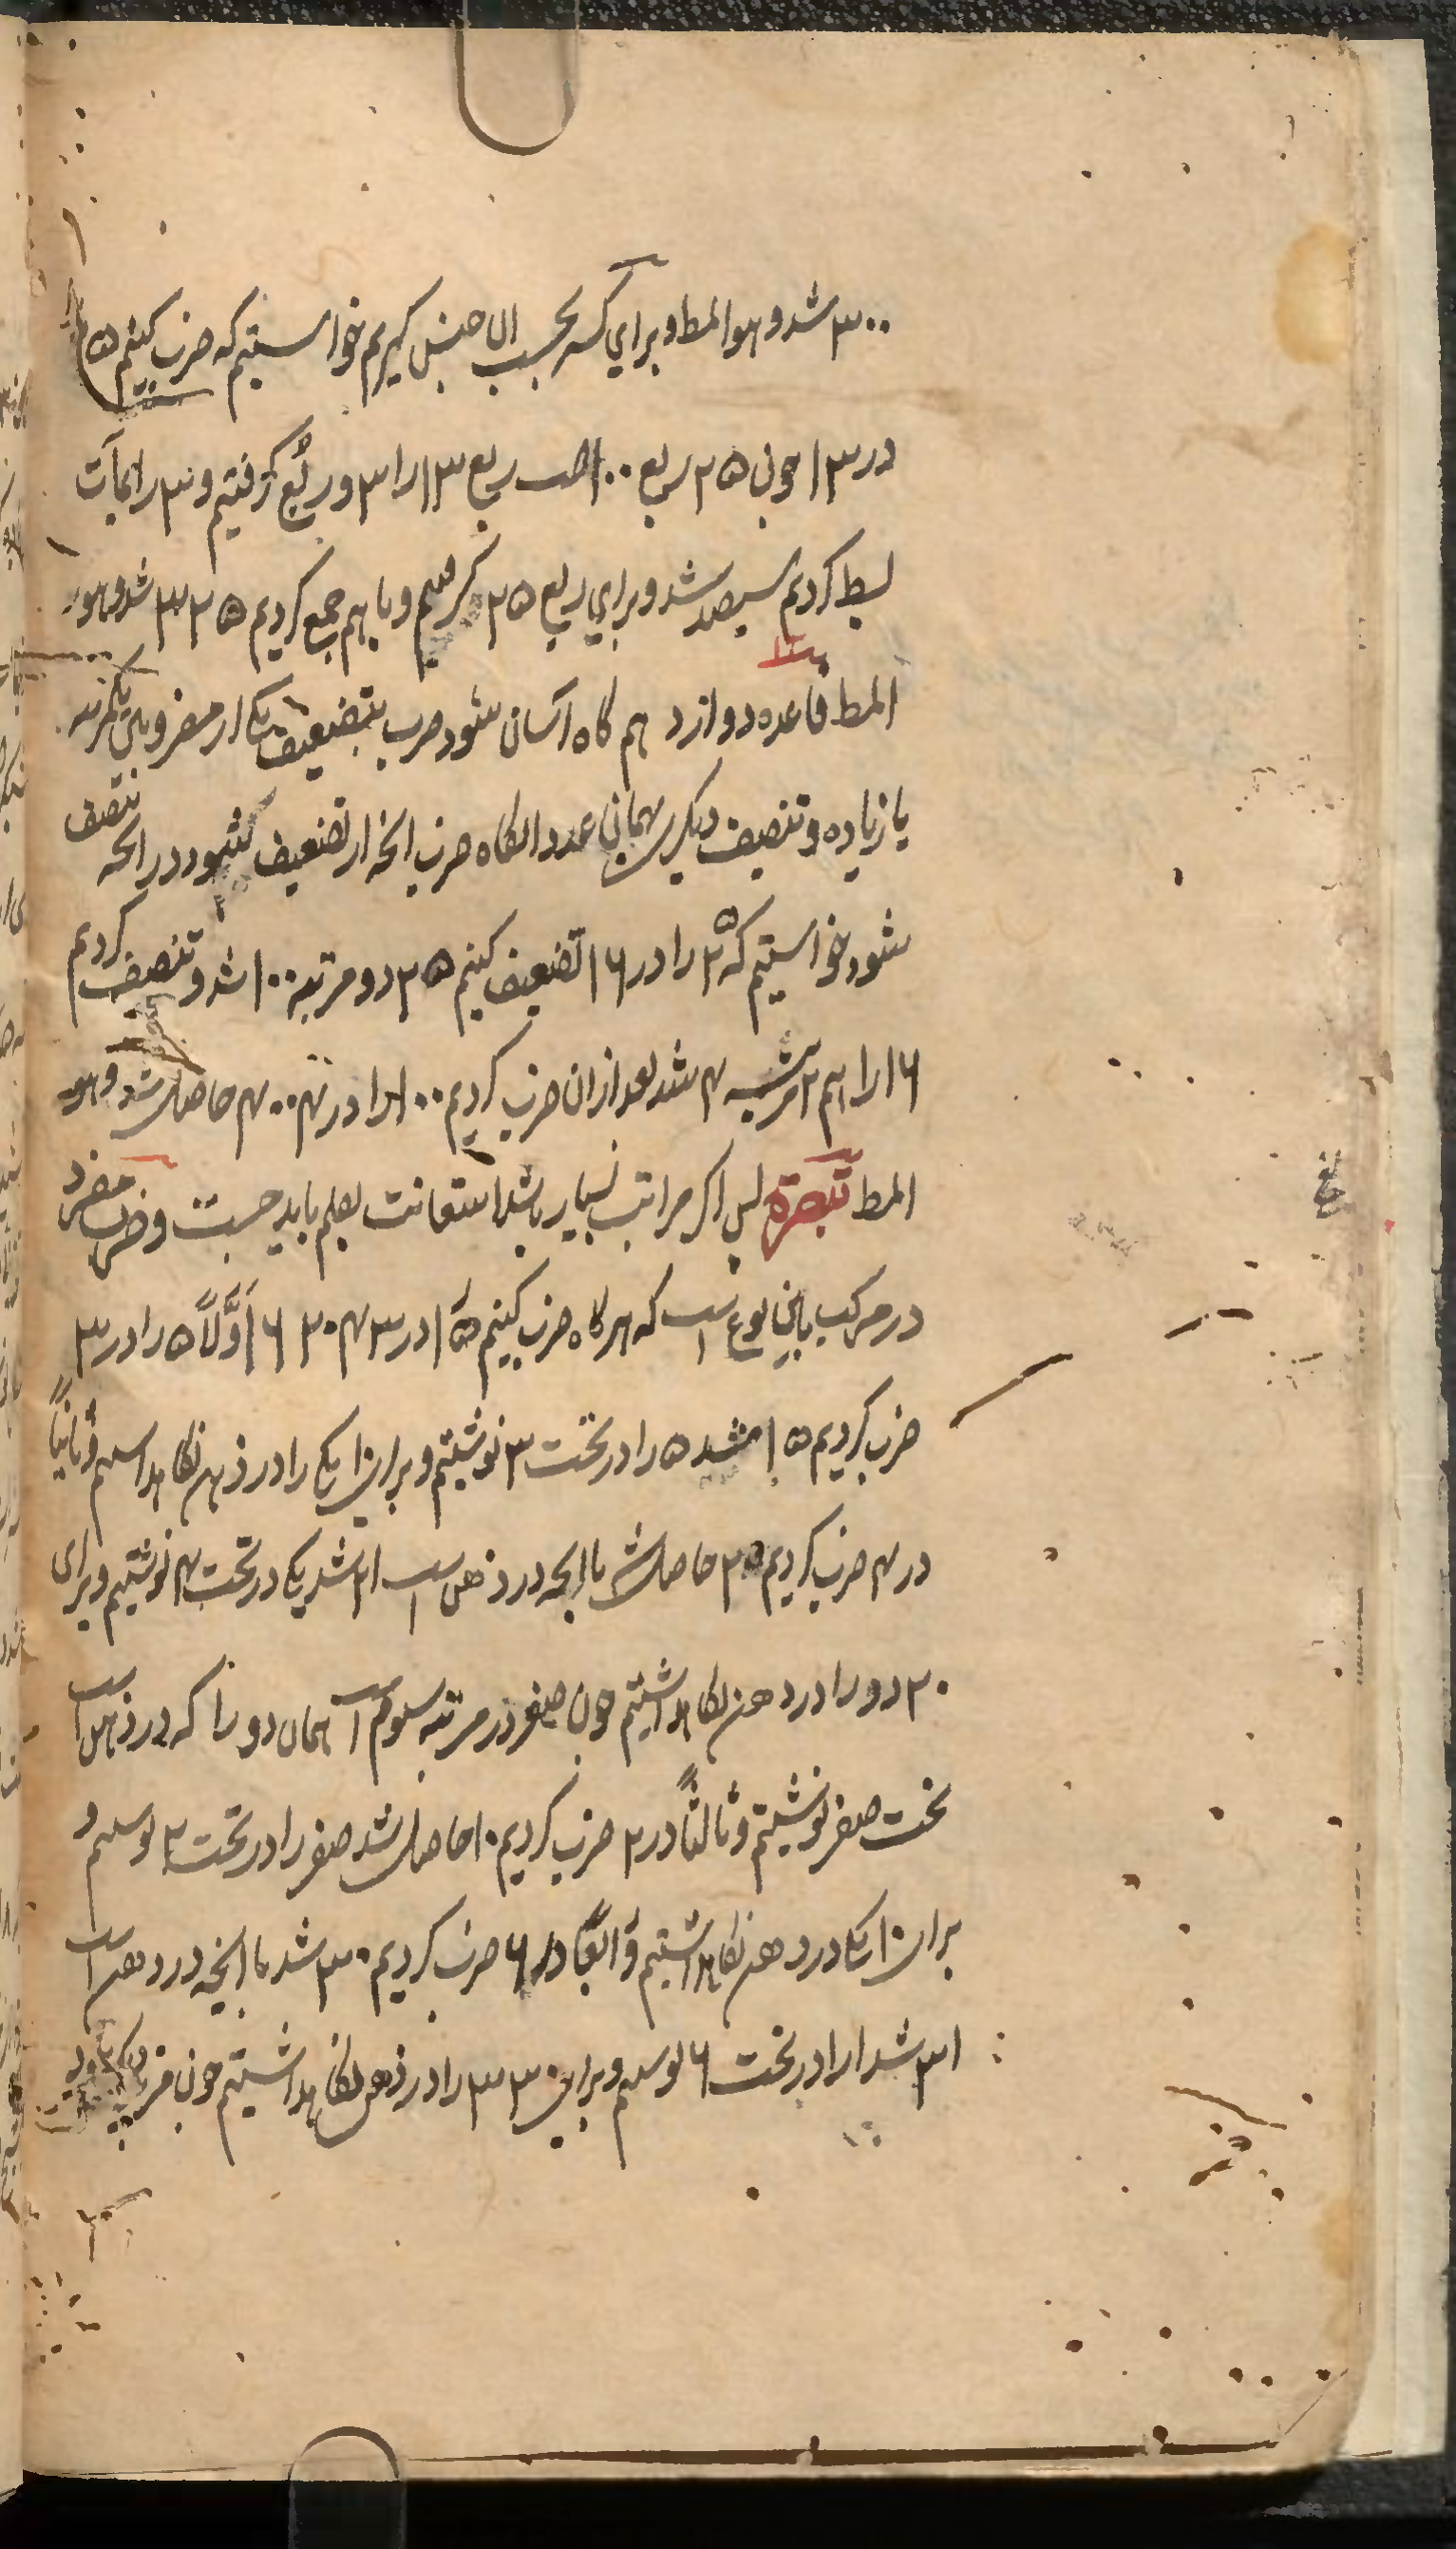 ۳۰۰ شد و هوالمط و برای کسر بحسب ان جنس گیریم خواستیم که ضرب کنیم ۲۵
در ۱۳ چون ۲۵ ربع ۱۰۰ است ربع ۱۳ را ۳ و ربع گرفتیم و ۳ را مآت
بسط کردیم سیصد شد و برای ربع ۲۵ گرفتیم و باهم جمع کردیم ۳۲۵ شد و هو
المط قاعده دوازد هم گاه آسان شود ضرب بتضعیف یکی از مضروبین یکمرتبه
یا زیاده و تنصیف دیگر بهمان عدد انگاه ضرب انچه از تضعیف شود در انچه تنصیف
شود خواستیم که ۲۵ را در ۱۶ تضعیف کنیم ۲۵ دو مرتبه ۱۰۰ شد و تنصیف کردیم
۱۶ را هم ۲ مرتبه ۴ شد بعد ازان ضرب کردیم ۱۰۰ را در ۴ ۴۰۰ حاصل شد و هو
المط تبصرة پس اگر مراتب بسیار باشد استعانت بقلم باید جست و ضرب مفرد
در مرکب باین نوع است که هرگاه ضرب کنیم ۵ را در ۶۲۰۴۳ اَوَّلاً ۵ را در ۳
ضرب کردیم ۱۵ شد ۵ را در تحت ۳ نوشتیم و برای ۱۰ یکی را در ذهن نگاهداشتیم و ثانیاً
در ۴ ضرب کردیم ۲۰ حاصل شد با انچه در ذهن است ۲۱ شد یک در تحت ۴ نوشتیم و برای
۲۰ دو را در ذهن نگاهداشتیم چون صفر در مرتبه سوم است همان دو را که در ذهن است
تحت صفر نوشتیم و ثالثاً در ۲ ضرب کردیم ۱۰ حاصل شد صفر را در تحت ۲ نوشتیم و
برای ۱۰ یکی در ذهن نگاهداشتیم و رابعاً در ۶ ضرب کردیم ۳۰ شد با انچه در ذهن است
۳۱ شد ۱ را در تحت ۶ نوشتیم و برای ۳۰ ۳ را در ذهن نگاهداشتیم چون مرتبه دیگر نبود